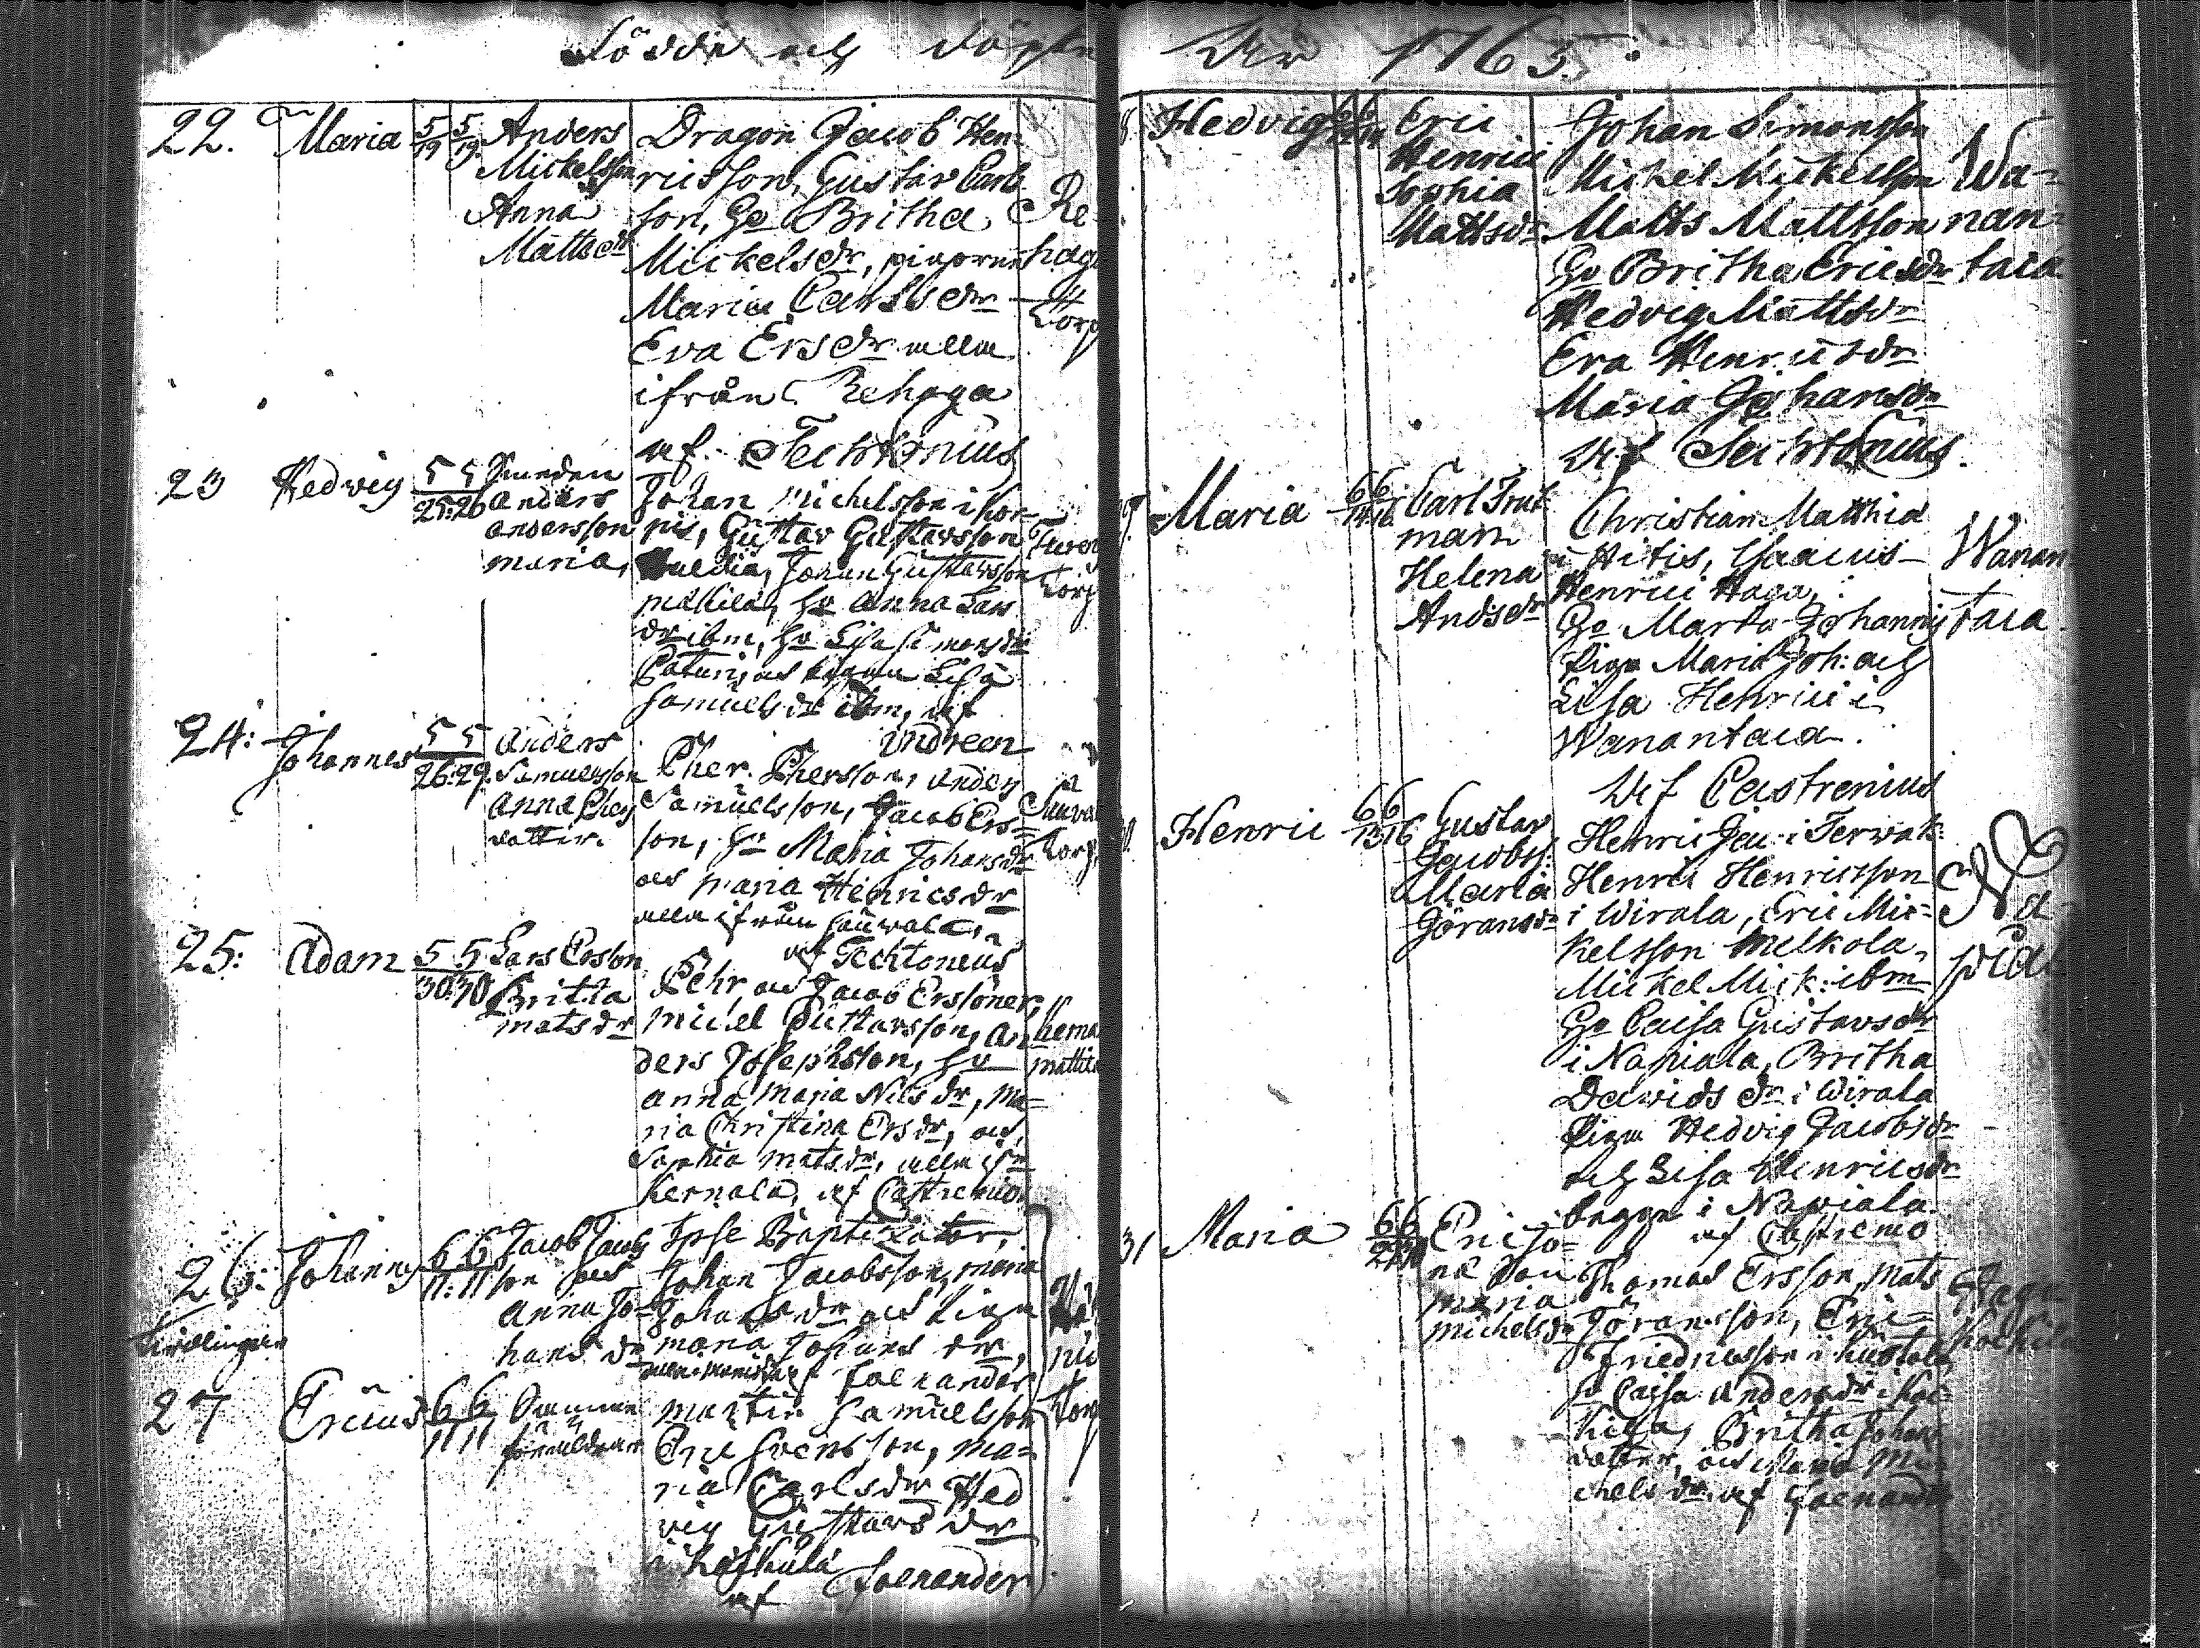 Födde och döpte
22. Maria 5/19 5/19 Anders
Mickelsson
Anna
Mattsdr
Dragon Jacob Hen-
ricsson, Gustav Carls
son, Ho Britha
Mickelsdr, pigorne
Maria Carlsdr
Eva Ersdr alla
ifrån Rehaga
af Techtonius
Re-
haga
Torp
23 Hedvig 5 5
25:26
Smeden
Anders
Andersson
Maria,
Johan Michelsson i
Gustav Gustavsson
Johan Gustavsson
Mattila, Ho Anna Lars
dr ibm, Ho Lisa Simonsdr
Lisa
Samuelsdr ibm, af
Indreen
Torp
24: Johannes 5 5
26:29
Anders
Samuelsson
Anna Phers
dotter.
Pher Phersson, Anders
Samuelsson, Jacob Ers-
son, Ho Maria Johansdr
och Maria Henricsdr
alla ifrån
af Techtonius
Torp
25: Adam 5 5
30:30
Lars Ersson
Britta
Matsdr
Pehr och Jacob Erssöner,
Michel Gustavsson, An-
ders Josephsson, Ho
Anna Maria Nilsdr, Ma-
ria Christina Ersdr, och
Sophia Matsdr, alla
Kernala, af Castrenio
Mattila
26: Johannes 6 6
11:11
Jacob Jacobs
son och
Anna Jo-
hansdr
Ipse Baptizator,
Johan Jacobsson, Maria
Johansdr och Pigan
Maria Johansdr,
af Foenander
Tvillingar
27 Ericus 6 6
11 11
Samma
föräldrar
Martin Samuelsson
Eric Svensson, Ma-
ria Carlsdr Hed
vig Gustavsdr
af Foenander
Torp
Åhr 1765.
Hedvig Eric
Henrici
Sophia
Mattsdr
Johan Simonsson
Michel Mickelsson
Matts Mattsson
Ho Britha Ericsdr
Hedvig Mattsdr
Eva Henricsdr
Maria Johansdr
af Techtonius.
Wa-
nan-
taca
Maria 6 6
14 16
Carl Trut
man
Helena
Andsdr
Christian Matthiæ
i Hitis, Isaacus
Henrici Haga,
Ho Marta Johannis
Pigan Maria Joh: och
Lisa Henrici i
Wanantaca.
af Castrenius
Wanan
taca.
Henric 6 6
15 16
Gustav
Jacobss:
Maria
Göransdr
Henric Jac: i Terwak:
Henric Henricsson
i Wirala, Eric Mic-
kelsson Melkola,
Mickel Mick: ibm
Ho Caisa Gustavsdr
i Napiala, Britha
Davidsdr i Wirala
Pigan Hedvig Jacobsdr
och Lisa Henricsdr
begge i Napiala
af Castrenio
Na-
piala
31 Maria 6 6
Eric
Maria
Michelsdr
Thomas Ersson, Mats
Göransson, Eric
Friedricsson i
Ho Caisa Andersdr i
Britha Johans
dotter, och Maria Mi-
chelsdr. af Foenander